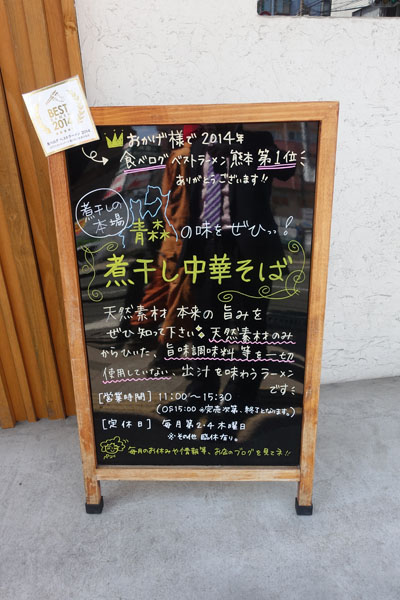 BEST
2014
おかげ様で2014年
食べログベストラーメン熊本第1位
ありがとうございます!!
煮干しの
本場
青森の味をぜひっ!
煮干し中華そば
天然素材 本来の旨みを
ぜひ知って下さい 天然素材のみ
からひいた、旨味調味料等を一切
使用していない、出汁を味わうラーメン
です
[営業時間] 11:00〜15:30
(OS15:00 ※完売次第、終了となります。)
[定休日] 毎月第2・4木曜日
※その他 臨休有り。
毎月のお休みや情報等、お店のブログを見てネ!!